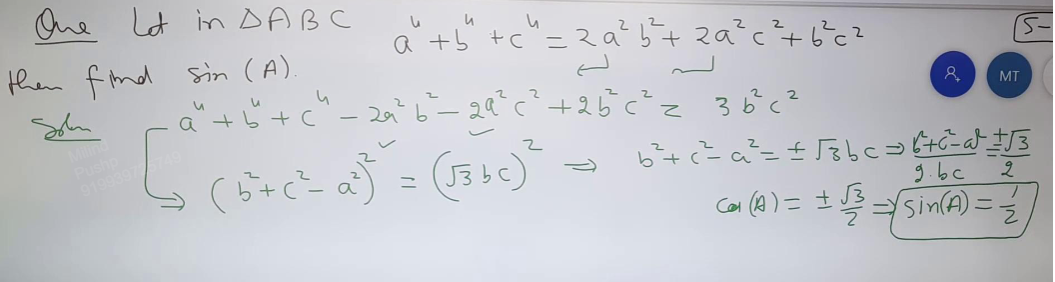 Que Let in ΔABC a⁴ + b⁴ + c⁴ = 2a²b² + 2a²c² + b²c² 5-
then find sin (A).
MT
Soln a⁴ + b⁴ + c⁴ - 2a²b² - 2a²c² + 2b²c² = 3b²c²
(b² + c² - a²)² = (√3 bc)² ⇒ b² + c² - a² = ± √3 bc ⇒ b²+c²-a²/2.bc = ±√3/2
cos(A) = ± √3/2 ⇒ sin(A) = 1/2